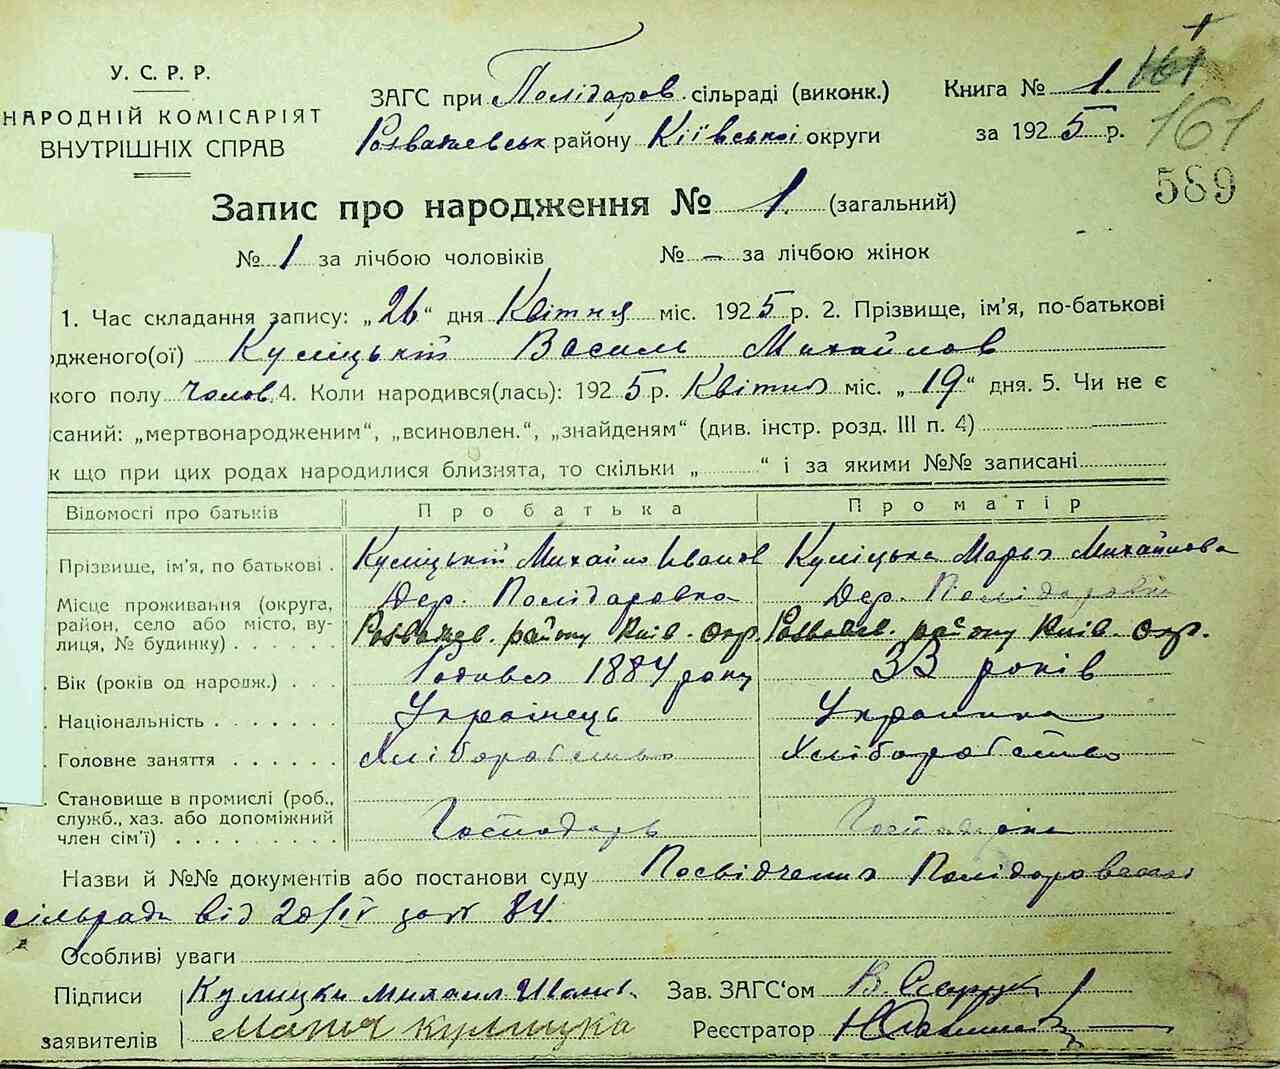 У. С. Р. Р.
НАРОДНІЙ КОМІСАРІЯТ
ВНУТРІШНІХ СПРАВ
ЗАГС при Полідаров. сільраді (виконк.)
Розважевськ району Київської округи
Книга № 1. 161
за 1925 р. 161
589
Запис про народження № 1. (загальний)
№ 1 за лічбою чоловіків № — за лічбою жінок
1. Час складання запису: „26“ дня Квітня міс. 1925 р. 2. Прізвище, ім’я, по-батькові
одженого(ої) Куліцький Василь Михайлов
кого полу чолов. 4. Коли народився(лась): 1925 р. Квітня міс. „19“ дня. 5. Чи не є
саний: „мертвонародженим“, „всиновлен.“, „знайденям“ (див. інстр. розд. III п. 4)
к що при цих родах народилися близнята, то скільки „ “ і за якими №№ записані
Відомості про батьків Про батька Про матір
Прізвище, ім’я, по батькові . Куліцький Михайло Іванов Куліцька Марья Михайлова
Місце проживання (округа, район, село або місто, вулиця, № будинку) Дер. Полідаровка Розважев. району Київ. окр. Дер. Полідаровка Розважев. району Київ. окр.
Вік (років од народж.) . . . Родився 1884 року 33 років
Національність Українець Украинка
Головне заняття Хліборобство Хліборобство
Становище в промислі (роб., служб., хаз. або допоміжний член сім’ї) Господарь Господарка
Назви й №№ документів або постанови суду Посвідчення Полідаровської
сільради від 20/IV за № 84.
Особливі уваги
Підписи Кулицки Михаил Иванов Зав. ЗАГС‘ом
заявителів Мария Кулицка Реєстратор